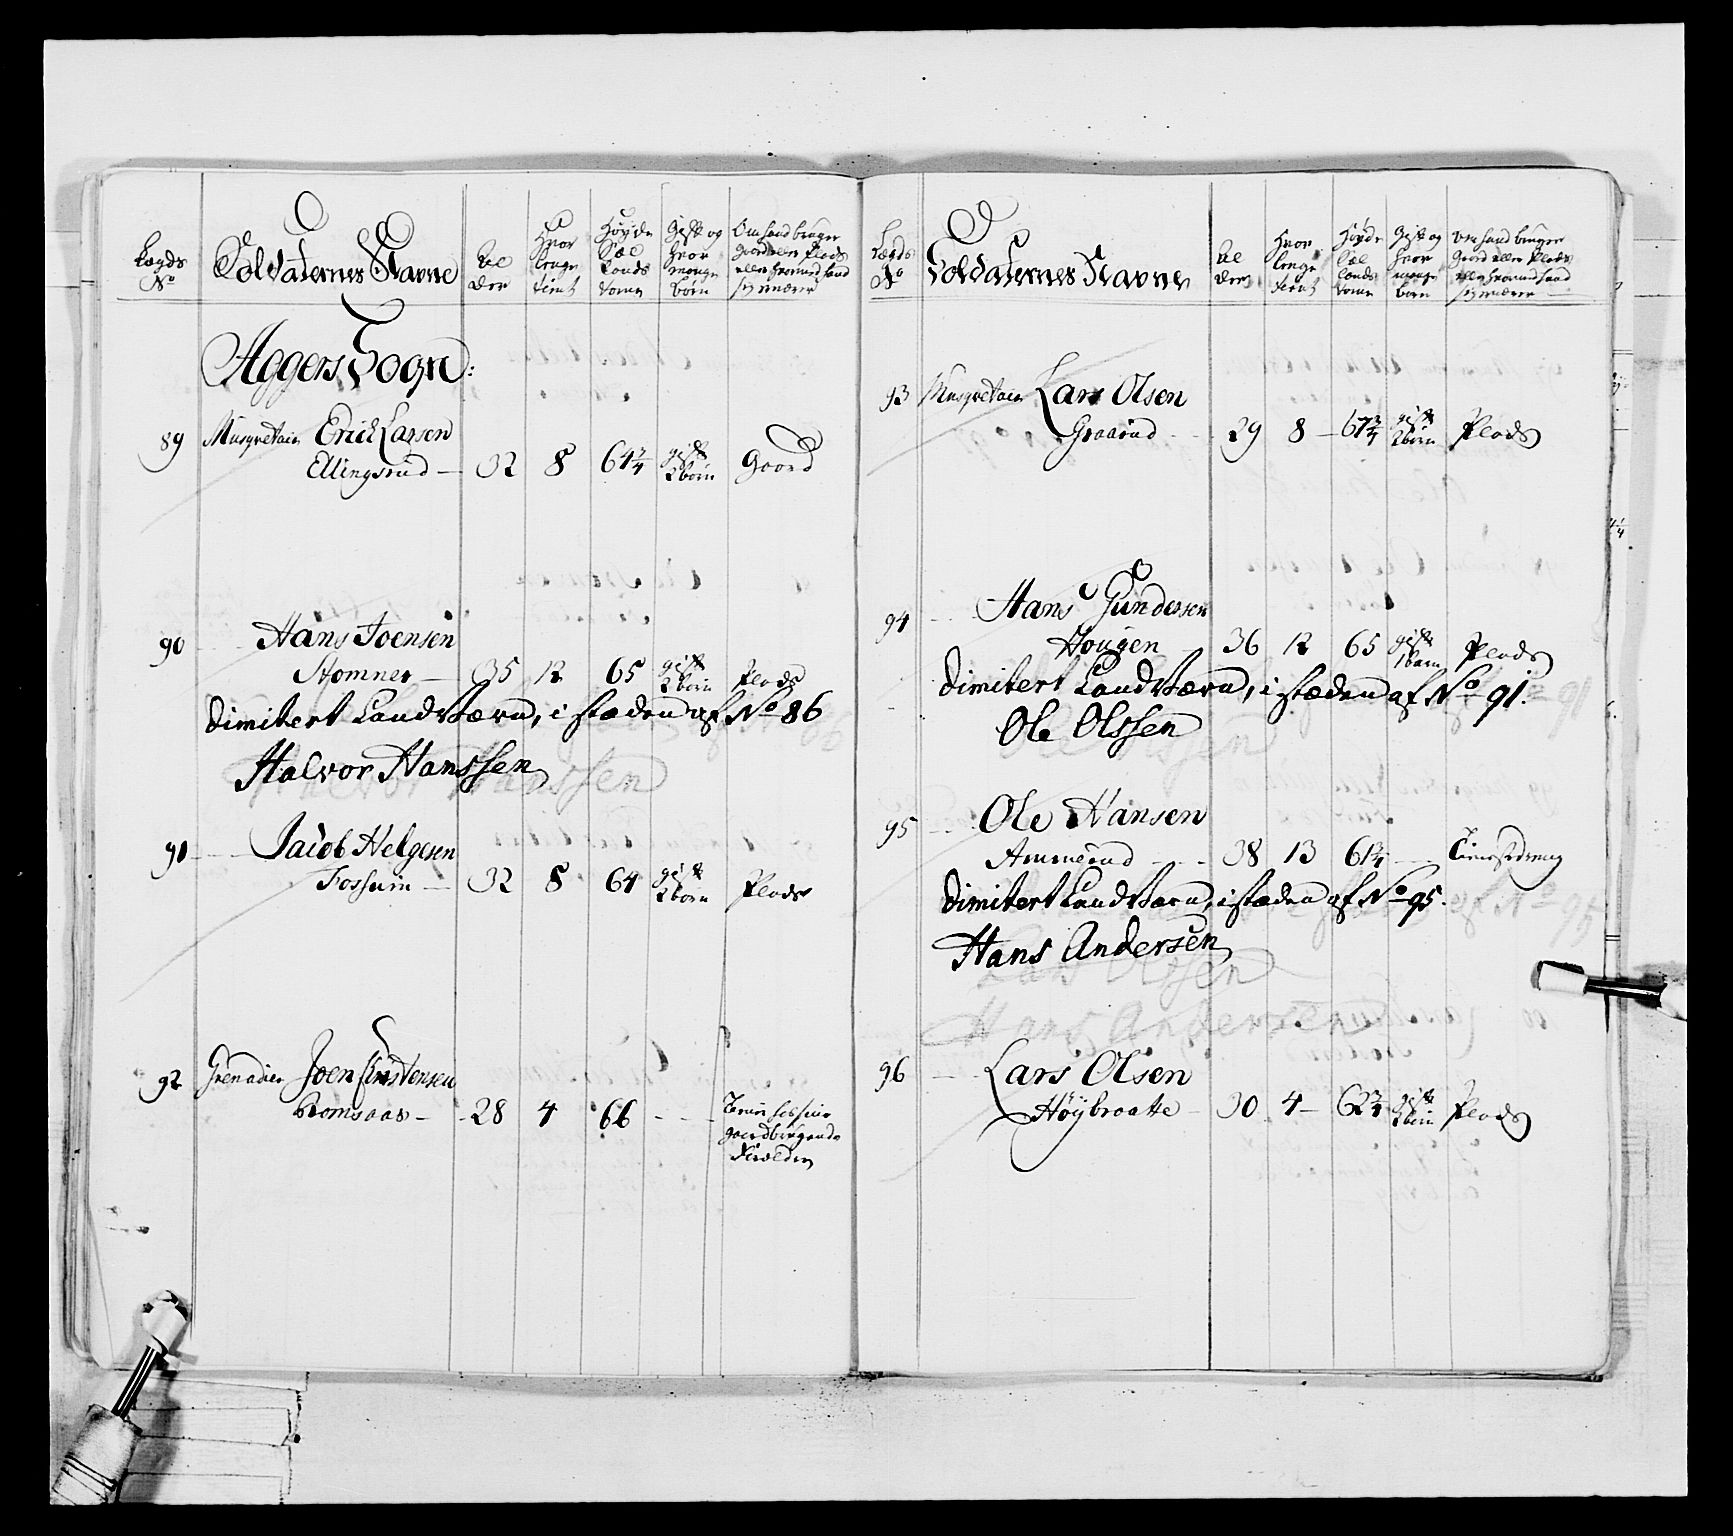 Lægds No
Soldaternes Navne
Al der
Hvor lenge tient
Høyde Sæl lands Tomer
Gift og hvor mange børn
Om hand bruger Gaard eller Plads eller hvormed hand sig nærer
Aggers Sogn:
89 Musqvetair Erick Larsen
Ellingsrud — 32 8 64 3/4 gift 2 børn Gaard
90 Hans Joensen
Stomner — 35 12 65 gift 2 børn Plads
Dimitert Landværn, i stæden af No 86
Halvor Hanssen
91 Jacob Helgesen
Fossum — 32 8 64 gift 2 børn Plads
92 Grenadier Joen Christensen
Romsaas — 28 4 66 - -
gaardbrugende
Forældre
Lægds No
Soldaternes Navne
Al der
Hvor lenge tient
Høyde Sæl lands Tomer
Gift og hvor mange børn
Om hand bruger Gaard eller Plads eller hvormed hand sig nærer
93 Musqvetair Lars Olsen
Graarud - 29 8 — 67 3/4 gift 2 børn Plads
94 Hans Gundersen
Hougen 36 12 65 gift 1 barn Plads
Dimitert Landværn, i stæden af No 91.
Ole Olssen
95 Ole Hansen
Ammerud - - 38 13 61 3/4 — Tienestedreng
Dimitert Landværn, i stæden af No 95.
Hans Andersen
96 Lars Olsen
Høybraatte — 30 4 — 62 3/4 gift 2 børn Plads